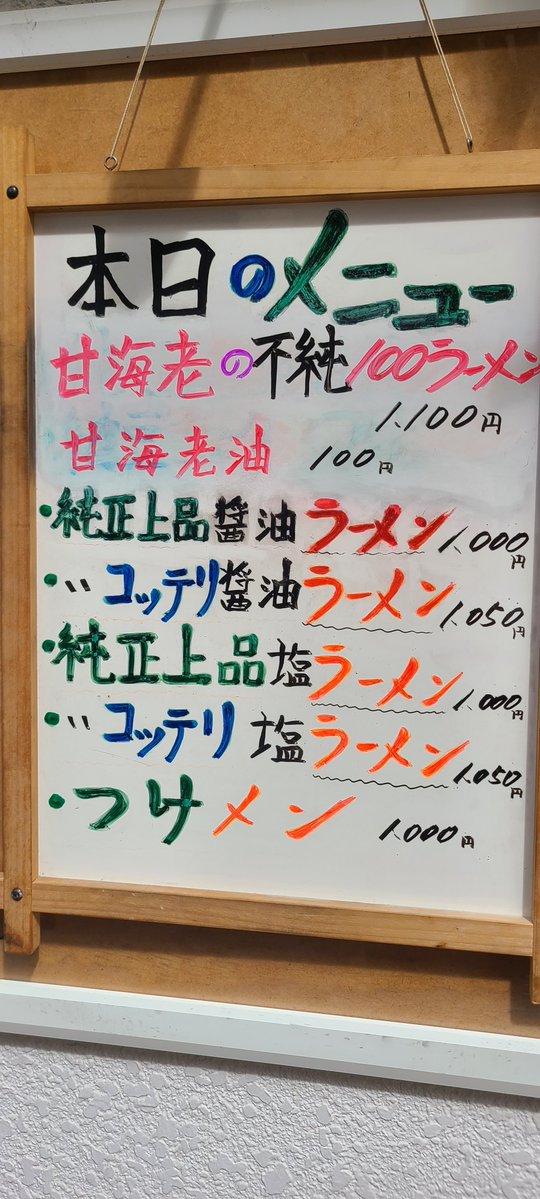 本日のメニュー
甘海老の不純100ラーメン
1,100円
甘海老油 100円
・純正上品醤油ラーメン 1,000円
・〃コッテリ醤油ラーメン 1,050円
・純正上品塩ラーメン 1,000円
・〃コッテリ塩ラーメン 1,050円
・つけメン 1,000円